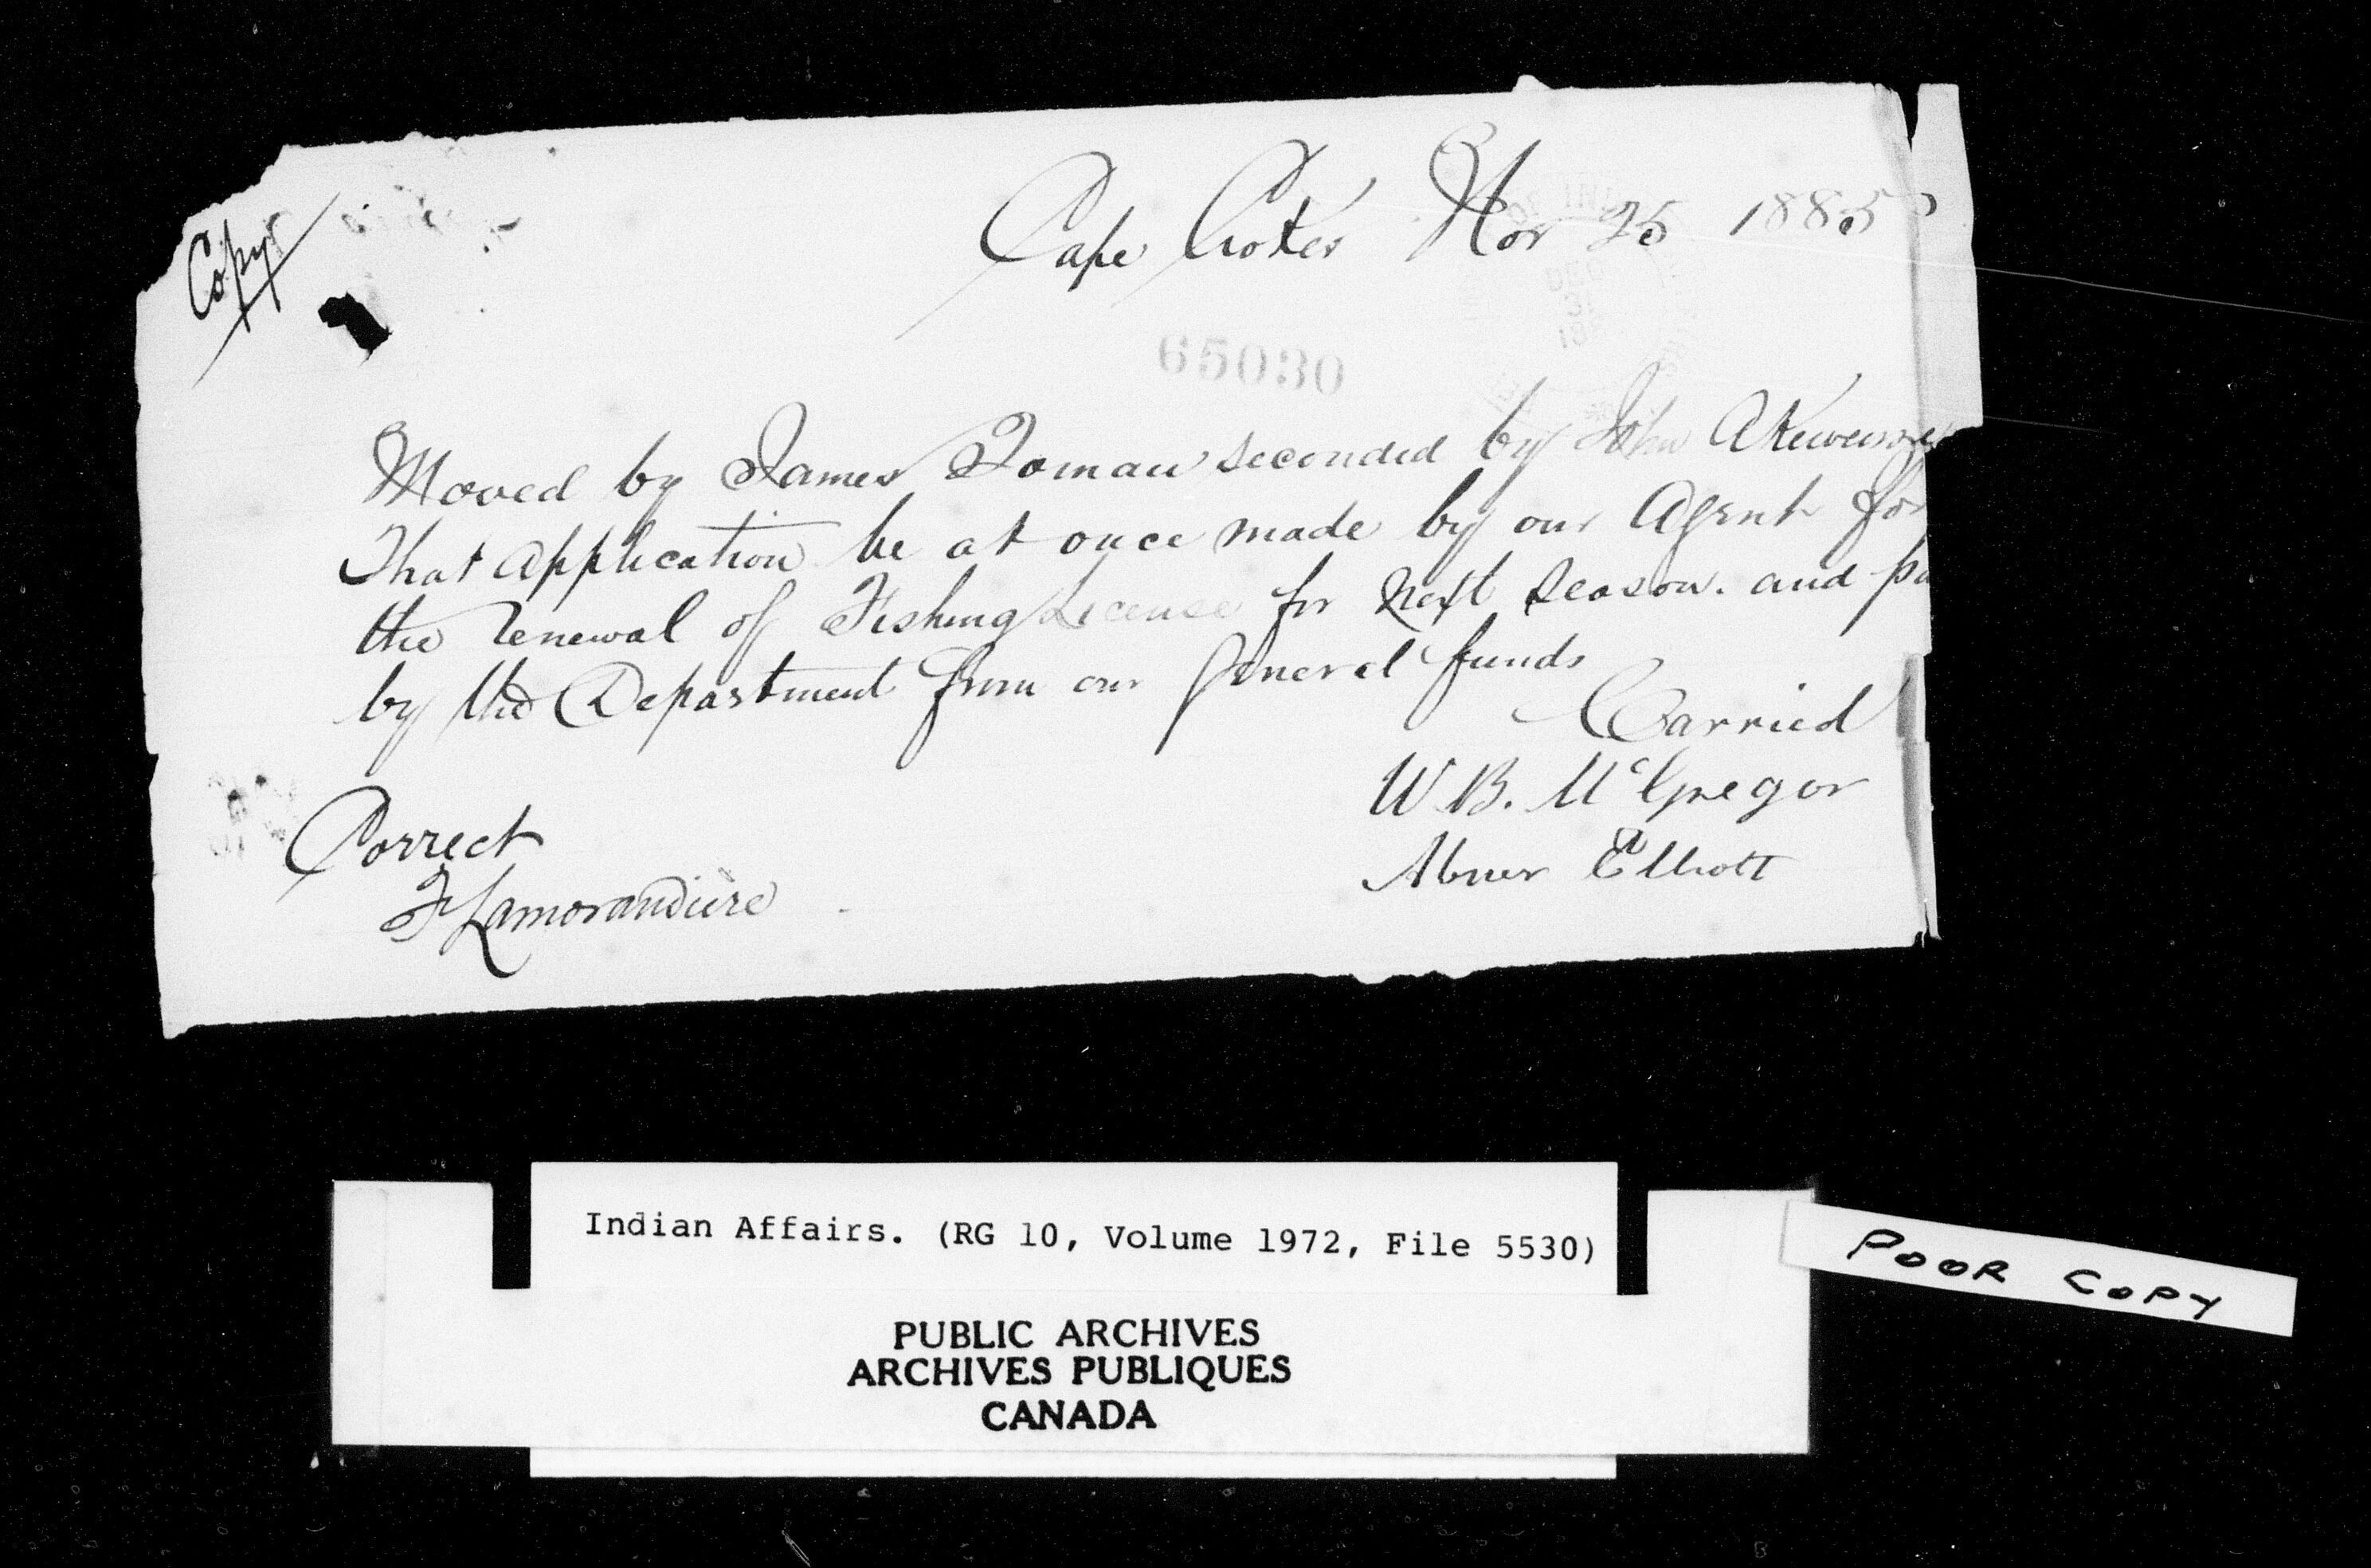 Copy
Cape Croker Nov 25 1885
65030
DEC
31
Moved by James Tomau seconded by John Akewenzie
That Application be at once made by our Agent for
the renewal of Fishing License for Next Season. and pa
by the Department from our general funds
Carried
W. B. McGregor
Abner Elliott
Correct
F Lamorandiere
Indian Affairs. (RG 10, Volume 1972, File 5530)
POOR COPY
PUBLIC ARCHIVES
ARCHIVES PUBLIQUES
CANADA